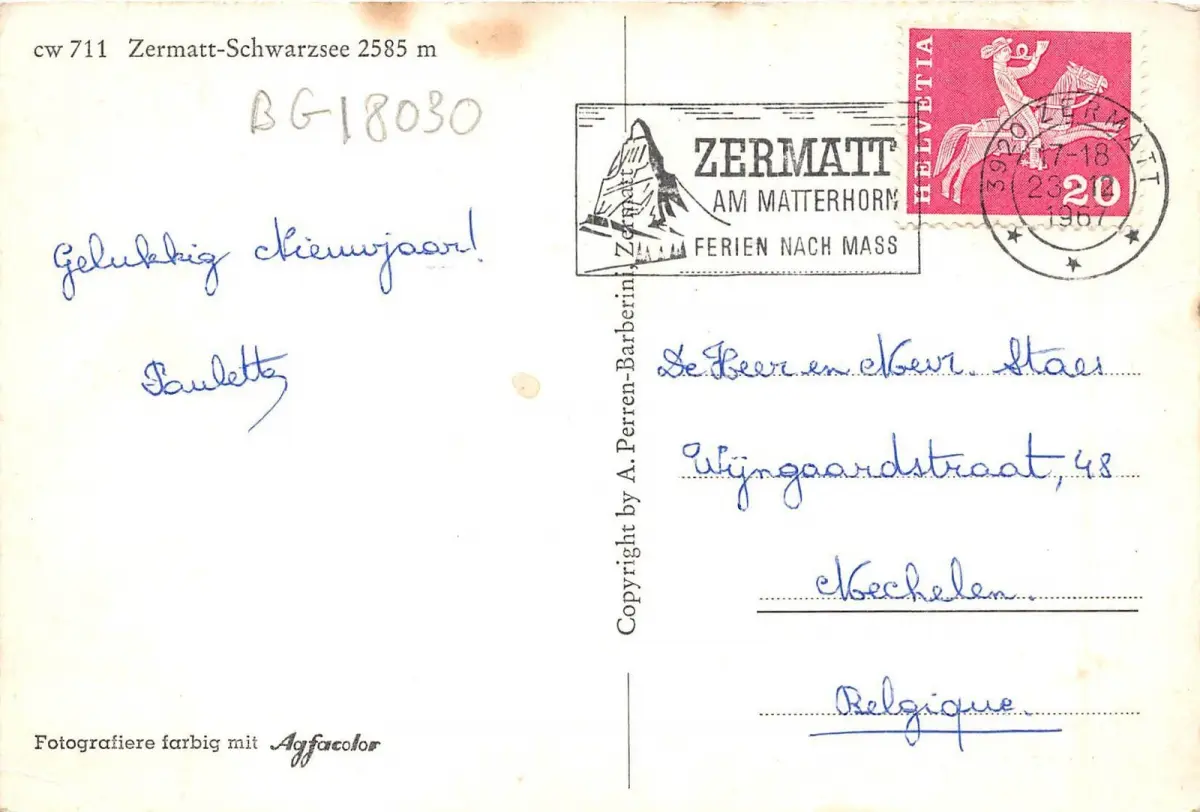 cw 711 Zermatt-Schwarzsee 2585 m
BG18030
Gelukkig Nieuwjaar!
Paulette
Fotografiere farbig mit Agfacolor
Copyright by A. Perren-Barberini, Zermatt
ZERMATT
AM MATTERHORN
FERIEN NACH MASS
HELVETIA
20
3920 ZERMATT
17-18
23.12
1967
De Heer en Mevr. Staes
Wijngaardstraat, 48
Mechelen.
Belgique.